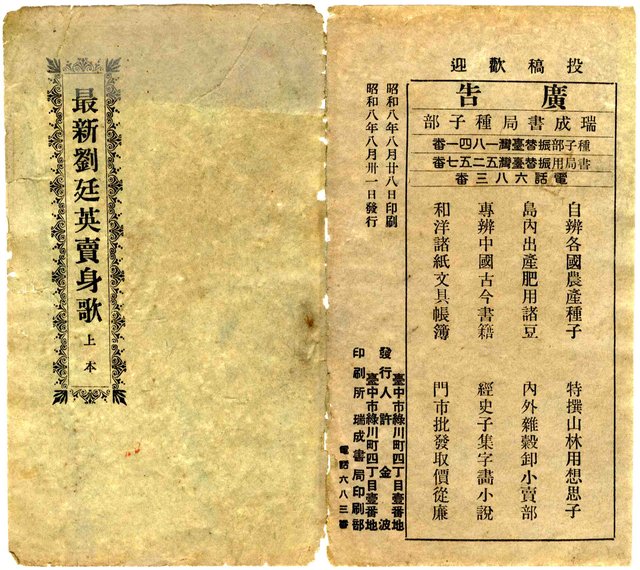 最新劉廷英賣身歌 上本
投稿歡迎
廣告
瑞成書局種子部
種子部振替臺灣一八四一番
書局用振替臺灣五二五七番
電話六八三番
自辨各國農產種子 特撰山林用想思子
島內出產肥用諸豆 內外雜穀卸小賣部
專辨中國古今書籍 經史子集字畫小說
和洋諸紙文具帳簿 門市批發取價從廉
昭和八年八月廿八日印刷
昭和八年八月卅一日發行
臺中市綠川町四丁目壹番地
發行人 許金波
臺中市綠川町四丁目壹番地
印刷所 瑞成書局印刷部
電話六八三番